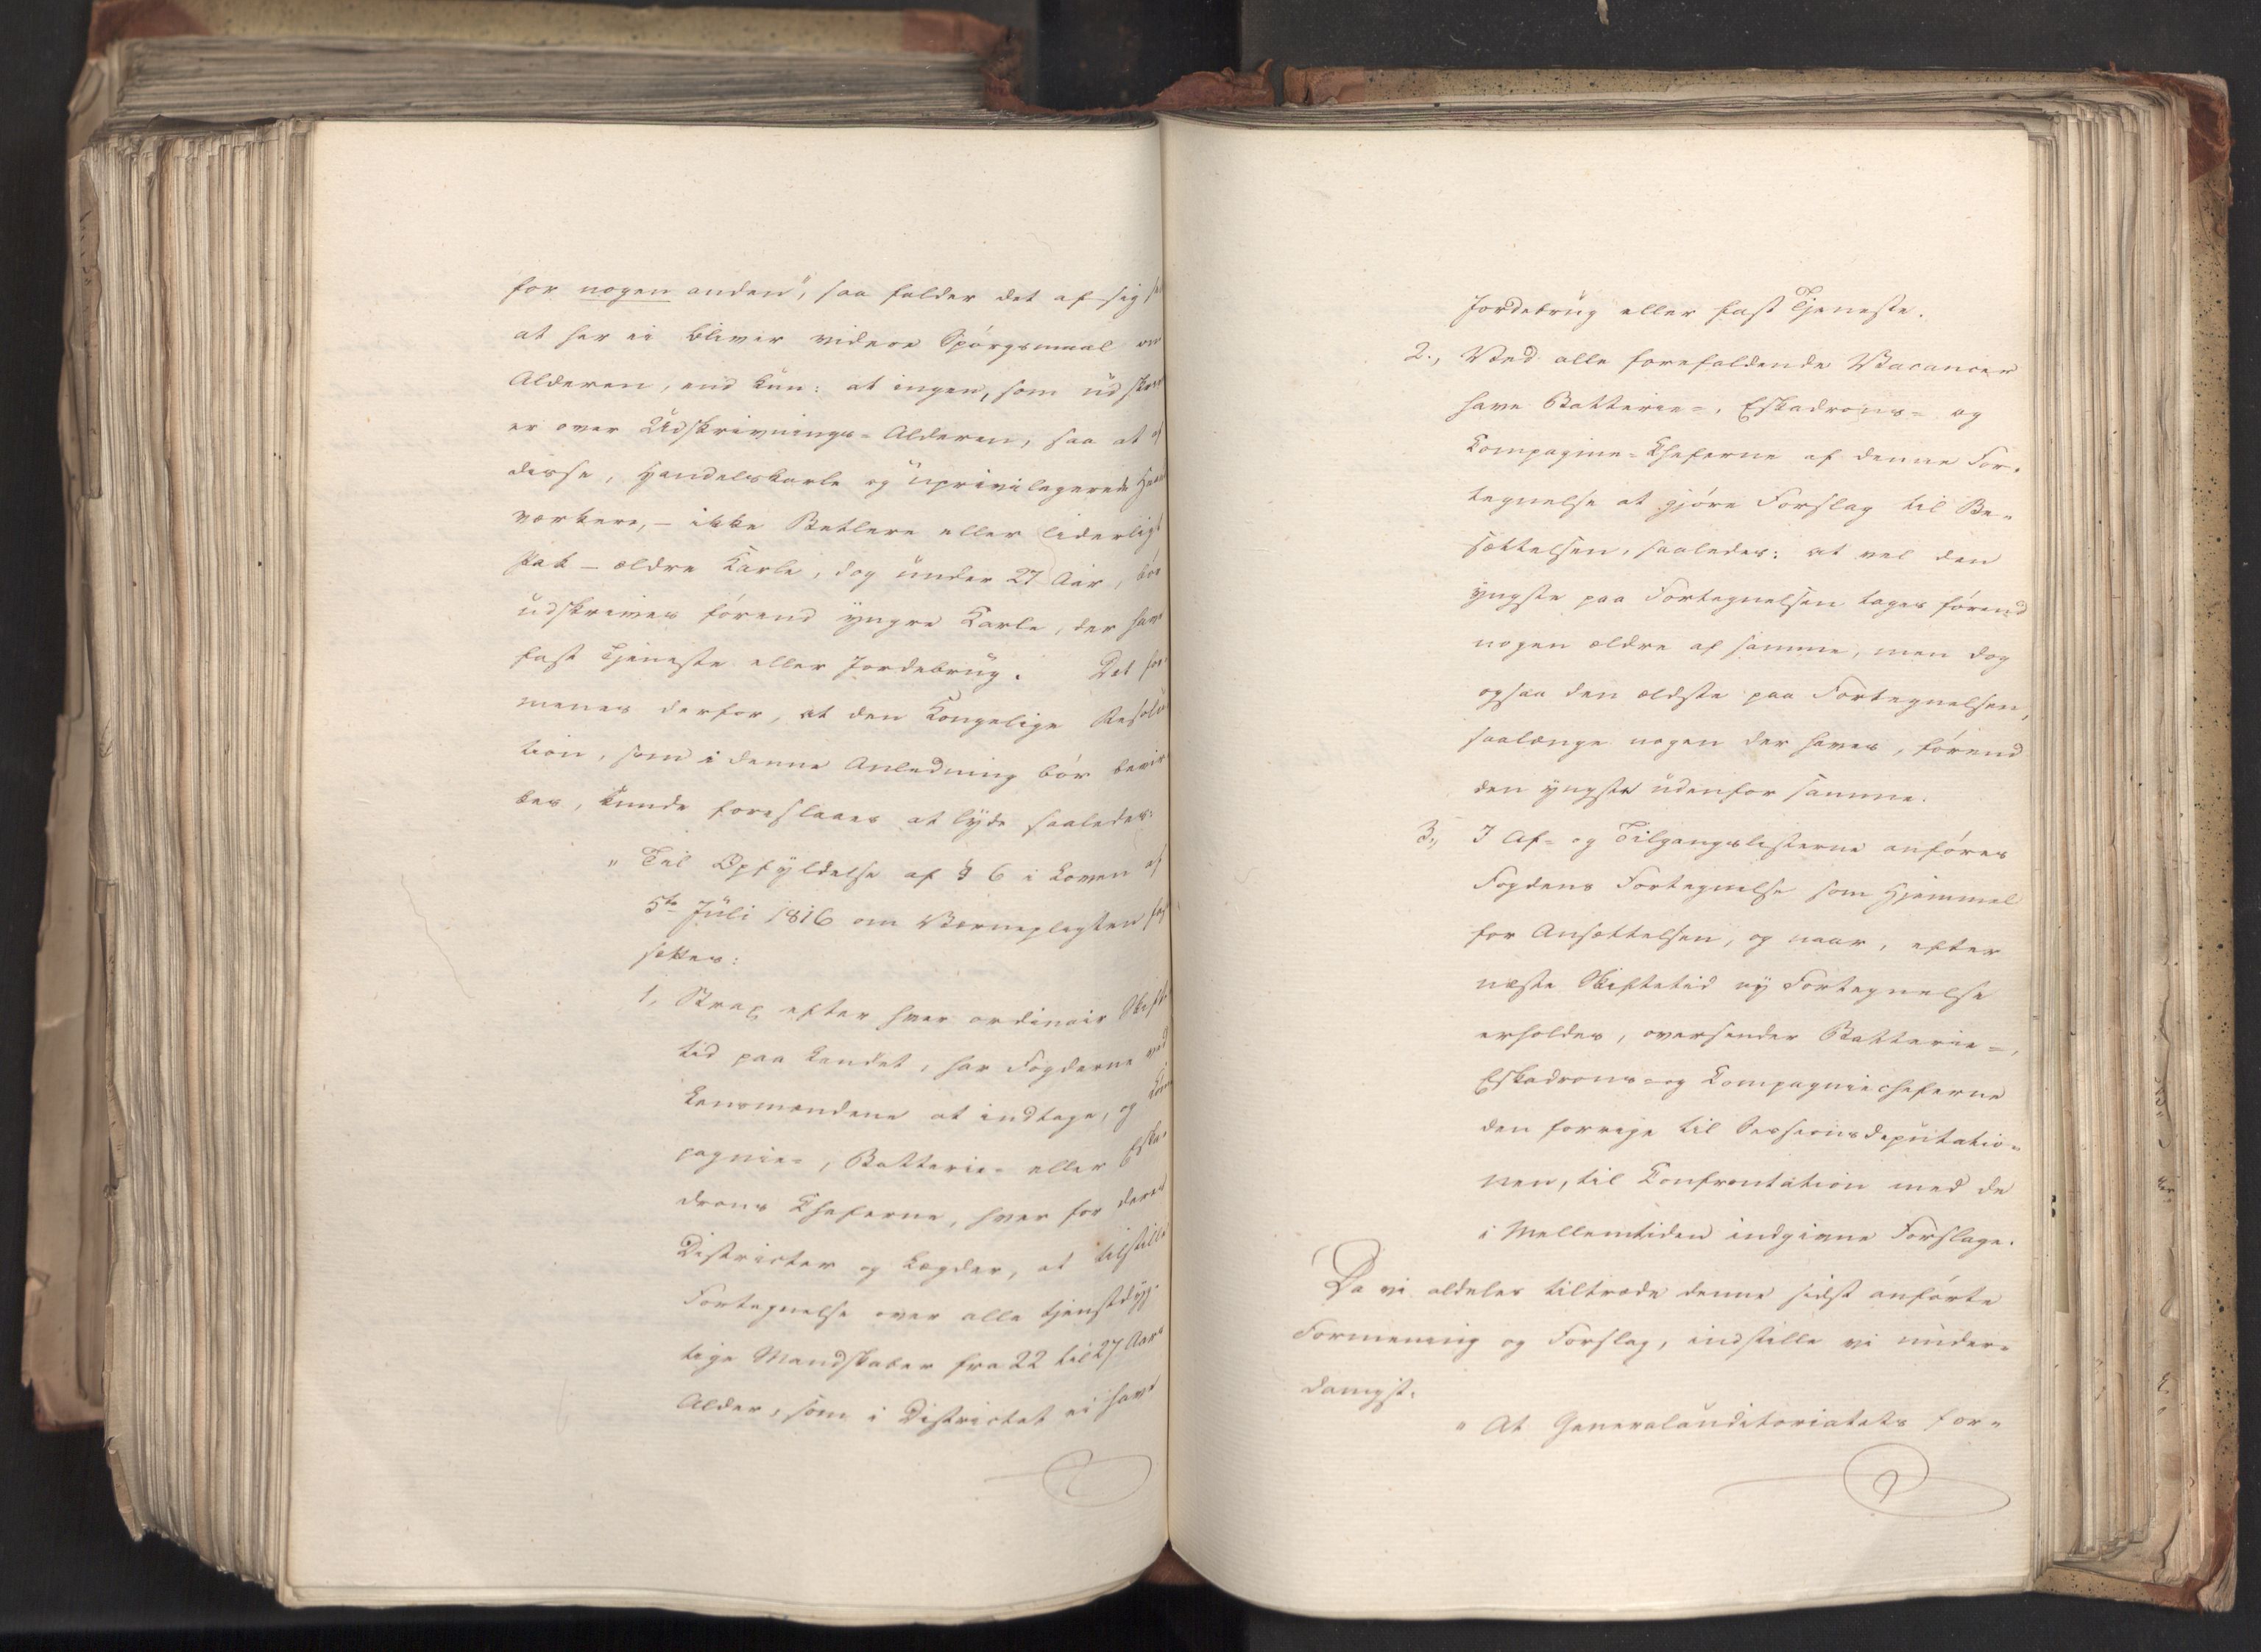 for nogen anden", saa falder det af sig
at her ei bliver videre Spörgsmaal om
Alderen, end kun: at ingen, som udskr
er over Udskrivnings-Alderen, saa at af
disse, Handelskarle og uprivilegerede Haand
værkere, – ikke Betlere eller liderligt
Pak – ældre Karle, dog under 27 Aar, bör
udskrives förend yngre Karle, der have
fast Tjeneste eller Jordebrug. Det for-
menes derfor, at den Kongelige Resolu
tion, som i denne Anledning bör bevir
kes, kunde foreslaaes at lyde saaledes:
" Til Opfyldelse af § 6 i Loven af
5te Juli 1816 om Værnepligten fast
settes:
1, Strax efter hver ordinair Skifte
tid paa Landet, har Fogderne ved
Lensmændene at indtage, og Kom
pagnie-, Batterie- eller Eska-
drons Cheferne, hver for deres
Districter og Lægder, at tilstille
Fortegnelse over alle tjenstdyg-
tige Mandskaber fra 22 til 27 Aars
Alder, som i Districtet ei have
Jordebrug eller fast Tjeneste.
2., Ved alle forefaldende Vacancer
have Batterie-, Eskadrons- og
Compagnie-Cheferne af denne For-
tegnelse at gjöre Forslag til Be-
sættelsen, saaledes: at vel den
yngste paa Fortegnelsen tages förend
nogen ældre af samme, men dog
ogsaa den ældste paa Fortegnelsen,
saalænge nogen der haves, förend
den yngste udenfor samme.
3., I Af- og Tilgangslisterne anföres
Fogdens Fortegnelse som Hjemmel
for Ansættelsen, og naar, efter
næste Skiftetid ny Fortegnelse
erholdes, oversender Batterie-,
Eskadrons- og Compagniecheferne
den forrige til Sessionsdeputatio-
nen, til Confrontation med de
i Mellemtiden indgivne Forslage.
Da vi aldeles tiltræde denne sidst anförte
Formening og Forslag, indstille vi under-
danigst:
" At Generalauditoriatets for-